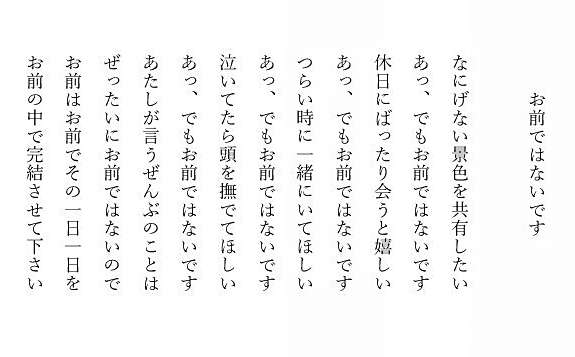 お前ではないです
なにげない景色を共有したい
あっ、でもお前ではないです
休日にばったり会うと嬉しい
あっ、でもお前ではないです
つらい時に一緒にいてほしい
あっ、でもお前ではないです
泣いてたら頭を撫でてほしい
あっ、でもお前ではないです
あたしが言うぜんぶのことは
ぜったいにお前ではないので
お前はお前でその一日一日を
お前の中で完結させて下さい